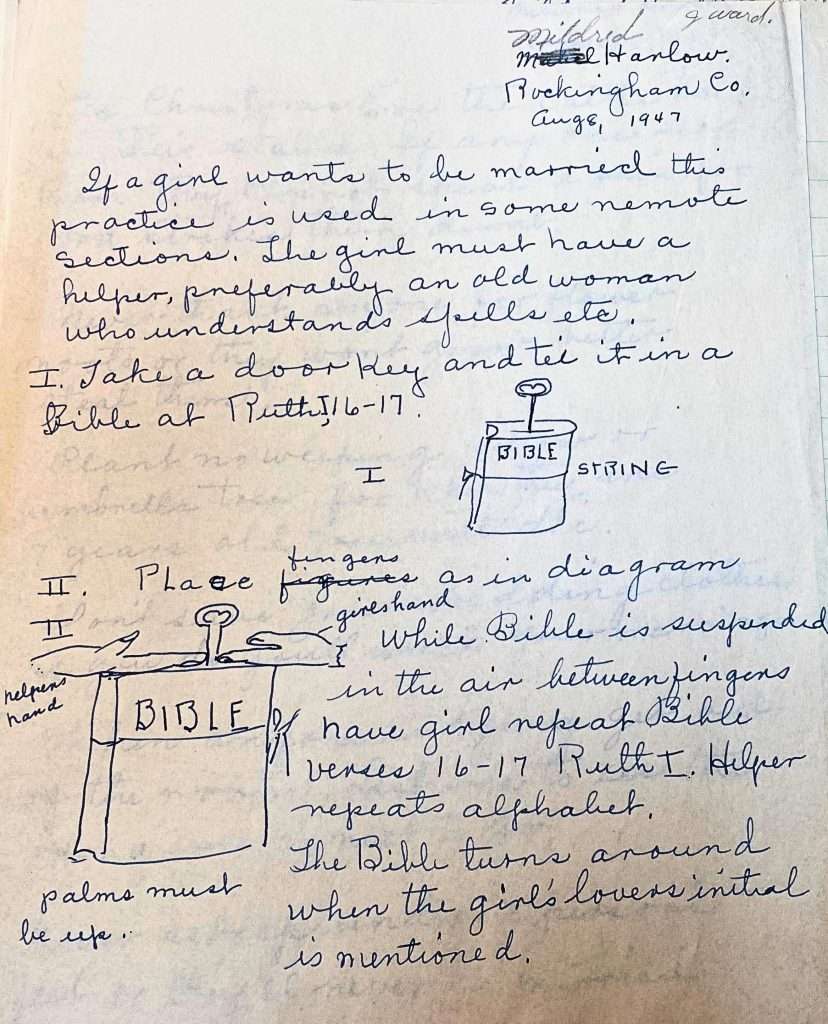 J Ward.
Mildred
Harlow.
Rockingham Co.
Aug 8, 1947
If a girl wants to be married this
practice is used in some remote
sections. The girl must have a
helper, preferably an old woman
who understands spells etc.
I. Take a door key and tie it in a
Bible at Ruth I, 16-17.
I
BIBLE
STRING
fingers
II. Place figures as in diagram
II
girls hand
helpers
hand
BIBLE
While Bible is suspended
in the air between fingers
have girl repeat Bible
verses 16-17 Ruth I. Helper
repeats alphabet.
The Bible turns around
when the girl's lovers initial
is mentioned.
palms must
be up.